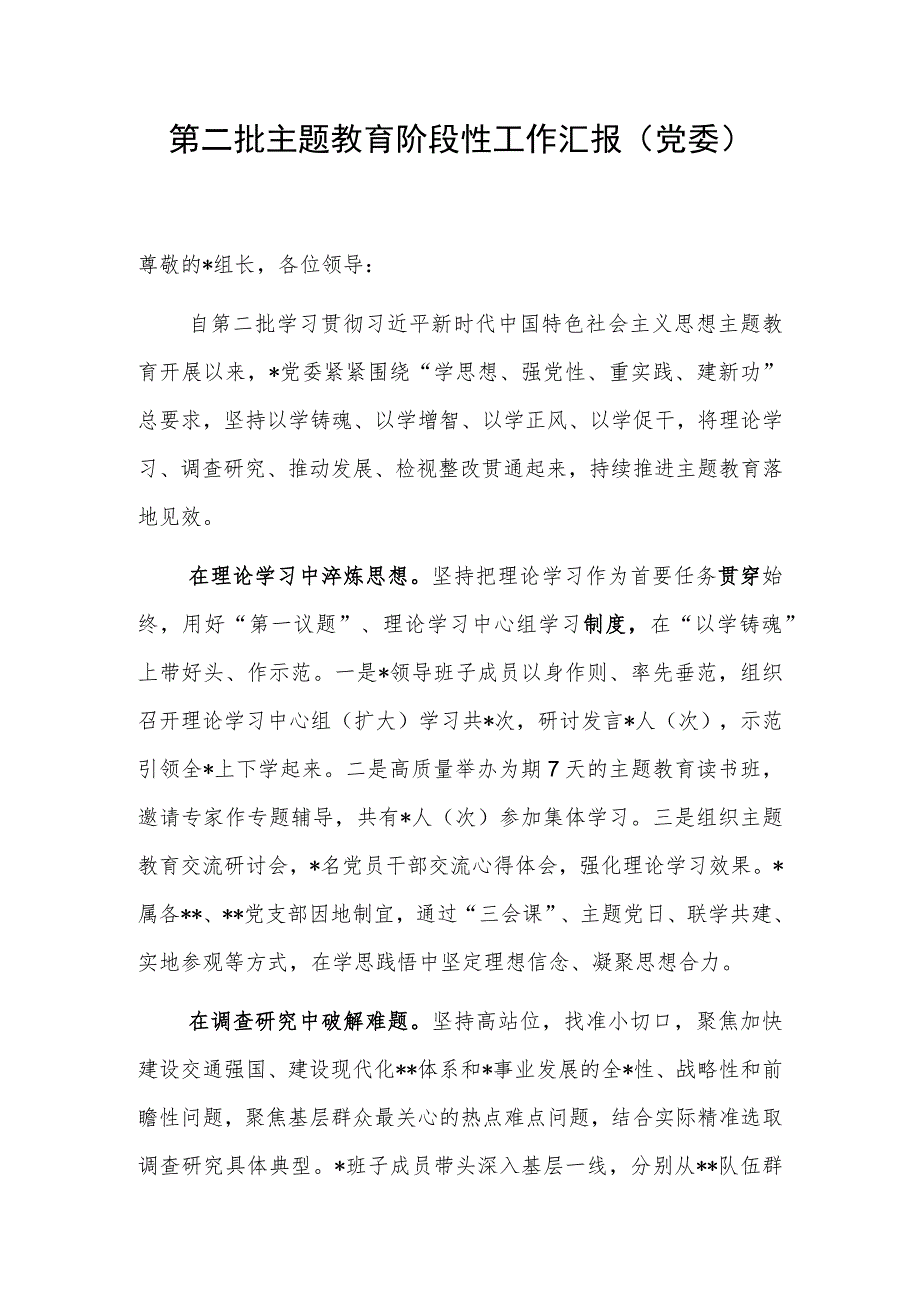 第二批主题教育阶段性工作汇报（党委）
尊敬的*组长，各位领导：
自第二批学习贯彻习近平新时代中国特色社会主义思想主题教
育开展以来，*党委紧紧围绕“学思想、强党性、重实践、建新功”
总要求，坚持以学铸魂、以学增智、以学正风、以学促干，将理论学
习、调查研究、推动发展、检视整改贯通起来，持续推进主题教育落
地见效。
在理论学习中淬炼思想。坚持把理论学习作为首要任务贯穿始
终，用好“第一议题”、理论学习中心组学习制度，在“以学铸魂”
上带好头、作示范。一是*领导班子成员以身作则、率先垂范，组织
召开理论学习中心组（扩大）学习共*次，研讨发言*人（次），示范
引领全*上下学起来。二是高质量举办为期7天的主题教育读书班，
邀请专家作专题辅导，共有*人（次）参加集体学习。三是组织主题
教育交流研讨会，*名党员干部交流心得体会，强化理论学习效果。*
属各**、**党支部因地制宜，通过“三会课”、主题党日、联学共建、
实地参观等方式，在学思践悟中坚定理想信念、凝聚思想合力。
在调查研究中破解难题。坚持高站位，找准小切口，聚焦加快
建设交通强国、建设现代化**体系和*事业发展的全*性、战略性和前
瞻性问题，聚焦基层群众最关心的热点难点问题，结合实际精准选取
调查研究具体典型。*班子成员带头深入基层一线，分别从**队伍群